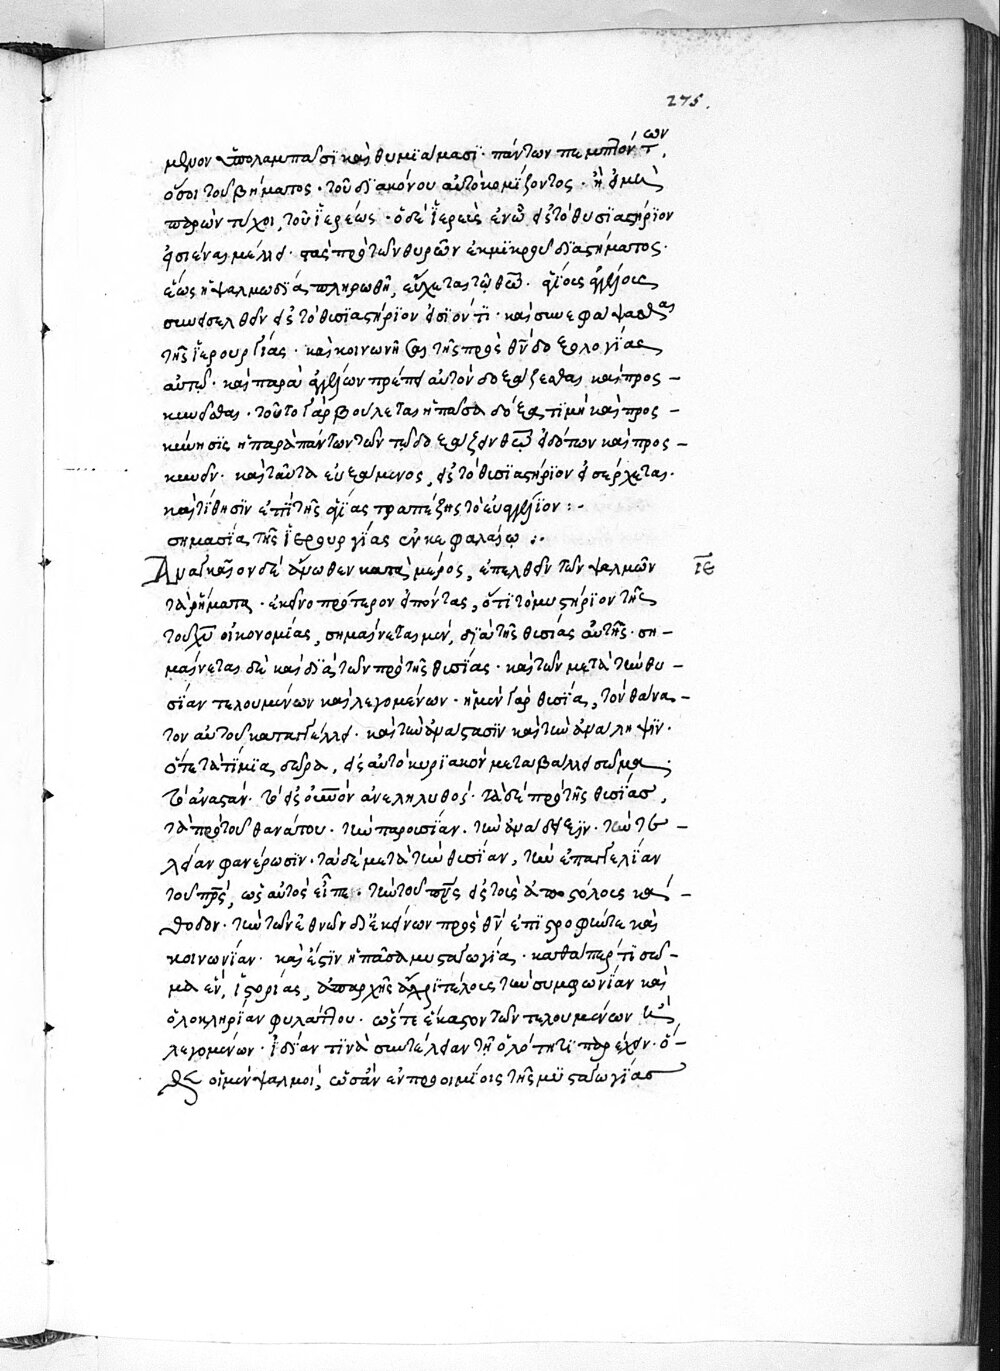 275.
μενον ὑπὸ λαμπάσι καὶ θυμιάμασι· πάντων προπεμπόντων,
ὅσοι τοῦ βήματος· τοῦ διακόνου αὐτὸ κομίζοντος· ἢ εἰ μὴ
παρὼν τύχοι, τοῦ ἱερέως· ὁ δὲ ἱερεὺς ἐν ᾧ εἰς τὸ θυσιαστήριον
εἰσιέναι μέλλει· στὰς πρὸ τῶν θυρῶν ἐκ μικροῦ διαστήματος·
ἕως ἡ ψαλμωδία πληρωθῆ, εὔχεται τῷ θεῷ· ἁγίοις ἀγγέλοις
συνεισελθεῖν εἰς τὸ θυσιαστήριον εἰσιόντι· καὶ συνεφάψασθαι
τῆς ἱερουργίας· καὶ κοινωνῆσαι τῆς πρὸς θεὸν δοξολογίας
αὐτῷ· καὶ παρὰ ἀγγέλων πρέπει αὐτὸν δοξάζεσθαι καὶ προσ–
κυνεῖσθαι· τοῦτο γὰρ βούλεται ἡ πᾶσα δόξα τιμὴ καὶ προσ–
κύνησις ἡ παρὰ πάντων τῷ δοξάζειν θεῷ εἰδότων καὶ προσ–
κυνεῖν· καὶ ταῦτα εὐξάμενος, εἰς τὸ θυσιαστήριον εἰσέρχεται·
καὶ τίθησιν ἐπὶ τῆς ἁγίας τραπέζης τὸ εὐαγγέλιον :-
σημασία τῆς ἱερουργίας ἐν κεφαλαίῳ :-
Ἀναγκαῖον δὲ ἄνωθεν κατὰ μέρος, ἐπελθεῖν τῶν ψαλμῶν ιε
τὰ ῥήματα· ἐκεῖνο πρότερον εἰπόντας, ὅτι τὸ μυστήριον τῆς
τοῦ χυ οἰκονομίας, σημαίνεται μὲν, διὰ τῆς θυσίας αὐτῆς· ση–
μαίνεται δὲ καὶ διὰ τῶν πρὸ τῆς θυσίας· καὶ τῶν μετὰ τὴν θυ–
σίαν τελουμένων καὶ λεγομένων· ἡ μὲν γὰρ θυσία, τὸν θάνα–
τον αὐτοῦ καταγγέλλει· καὶ τὴν ἀνάστασιν καὶ τὴν ἀνάληψιν·
ὅτε τὰ τίμια δῶρα, εἰς αὐτὸ κυριακὸν μεταβάλλει σῶμα·
τὸ ἀναστὰν· τὸ εἰς οὐνὸν ἀνεληλυθός· τὰ δὲ πρὸ τῆς θυσίας,
τὰ πρὸ τοῦ θανάτου· τὴν παρουσίαν· τὴν ἀνάδειξιν· τὴν τε–
λείαν φανέρωσιν· τὰ δὲ μετὰ τὴν θυσίαν, τὴν ἐπαγγελίαν
τοῦ πρς, ὡς αὐτὸς εἶπε· τὴν τοῦ πνς εἰς τοὺς ἀποστόλους κά–
θοδον· τὴν τῶν ἐθνῶν δι' ἐκείνων πρὸς θν ἐπιστροφὴν τε καὶ
κοινωνίαν· καὶ ἔστιν ἡ πᾶσα μυσταγωγία· καθάπερ τι σῶ–
μα ἓν, ἱστορίας, ἀπαρχῆς ἄχρι τέλους τὴν συμφωνίαν καὶ
ὁλοκληρίαν φυλάττον· ὥστε ἕκαστον τῶν τελουμένων καὶ
λεγομένων· ἰδίαν τινὰ συντέλειαν τῇ ὁλότητι παρέχειν· ὅ–
θεν οἱ μὲν ψαλμοὶ, ὡς ἂν ἐν προοιμίοις τῆς μυσταγωγίας